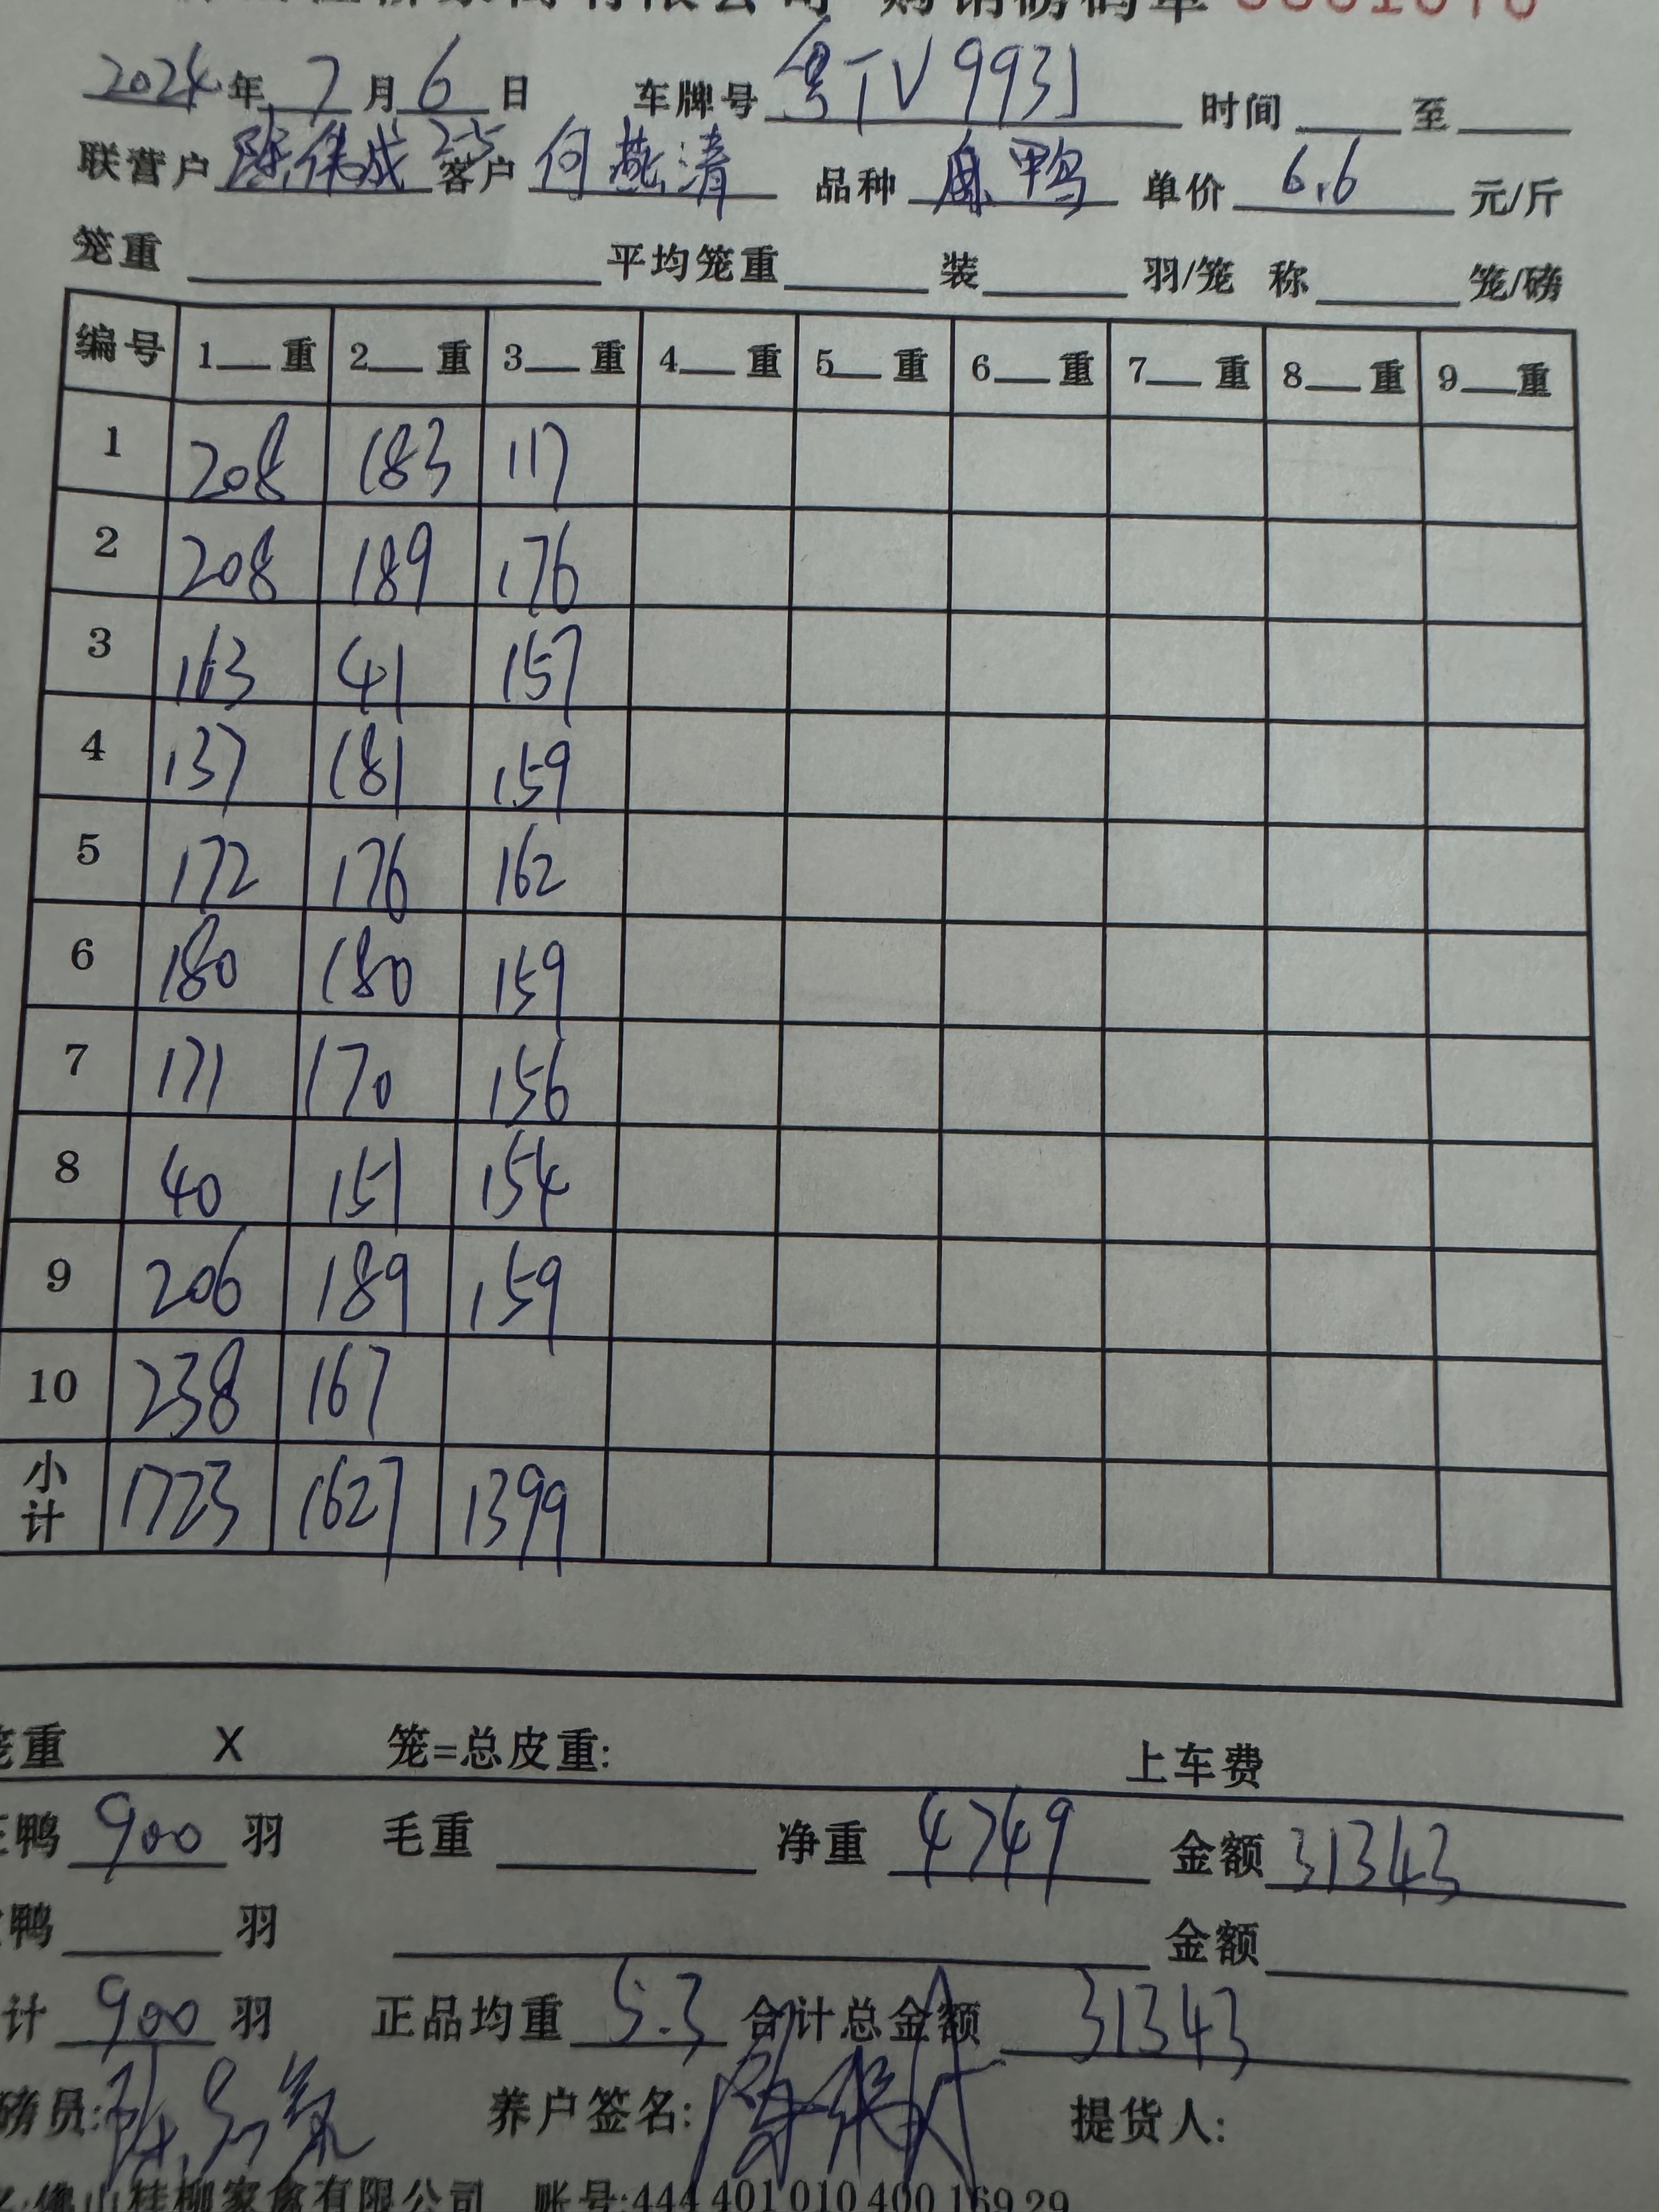 有限公司 购销磅码单
2024年7月6日 车牌号 粤TV9931 时间 至
联营户 陈伟成 25 客户 何燕清 品种 麻鸭 单价 6.6 元/斤
笼重 平均笼重 装 羽/笼 称 笼/磅
编号 1 重 2 重 3 重 4 重 5 重 6 重 7 重 8 重 9 重
1 208 183 117
2 208 189 176
3 163 41 157
4 137 181 159
5 172 176 162
6 180 180 159
7 171 170 156
8 40 151 154
9 206 189 159
10 238 167
小计 1723 1627 1399
笼重 X 笼=总皮重: 上车费
鸭 900 羽 毛重 净重 4749 金额 31343
鸭 羽 金额
计 900 羽 正品均重 5.3 合计总金额 31343
磅员: 养户签名: 提货人:
佛山桂柳家禽有限公司 账号:444 401 010 400 169 29